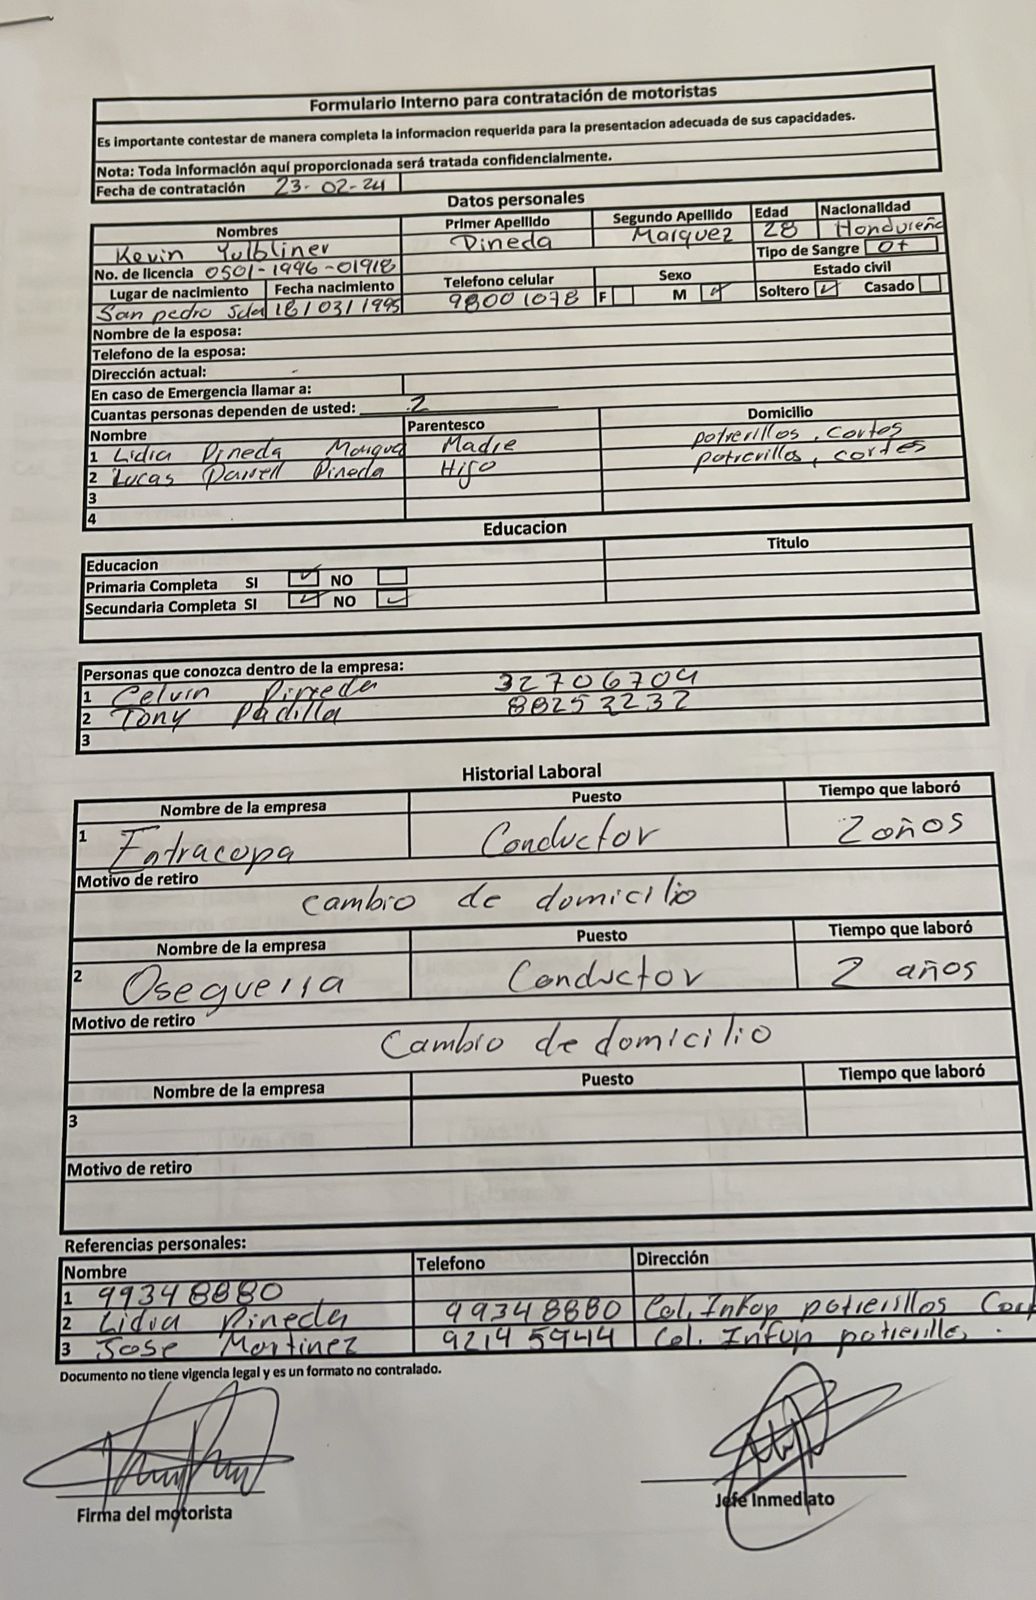 Formulario Interno para contratación de motoristas
Es importante contestar de manera completa la informacion requerida para la presentacion adecuada de sus capacidades.
Nota: Toda información aquí proporcionada será tratada confidencialmente.
Fecha de contratación 23-02-24
Datos personales
Nombres Primer Apellido Segundo Apellido Edad Nacionalidad
Kevin Yulbliner Pineda Marquez 28 Hondureño
No. de licencia 0501-1996-01918 Tipo de Sangre O+
Lugar de nacimiento Fecha nacimiento Telefono celular Sexo Estado civil
San pedro Sula 18/03/1995 98001078 F M Soltero Casado
Nombre de la esposa:
Telefono de la esposa:
Dirección actual:
En caso de Emergencia llamar a:
Cuantas personas dependen de usted: 2
Nombre Parentesco Domicilio
1 Lidia Pineda Madre potrerillos, cortes
2 Lucas Pineda Hijo potrerillos, cortes
3
4
Educacion
Educacion Titulo
Primaria Completa SI NO
Secundaria Completa SI NO
Personas que conozca dentro de la empresa:
1 Celvin Pineda 32706704
2 Tony Padilla 88252232
3
Historial Laboral
Nombre de la empresa Puesto Tiempo que laboró
1 Entracopa Conductor 2 años
Motivo de retiro
cambio de domicilio
Nombre de la empresa Puesto Tiempo que laboró
2 Oseguerra Conductor 2 años
Motivo de retiro
Cambio de domicilio
Nombre de la empresa Puesto Tiempo que laboró
3
Motivo de retiro
Referencias personales:
Nombre Telefono Dirección
1 99348880
2 Lidia Pineda 99348880 Col. Infop potrerillos
3 Jose Martinez 92145944 Col. Infop potrerillos.
Documento no tiene vigencia legal y es un formato no contralado.
Firma del motorista Jefe Inmediato